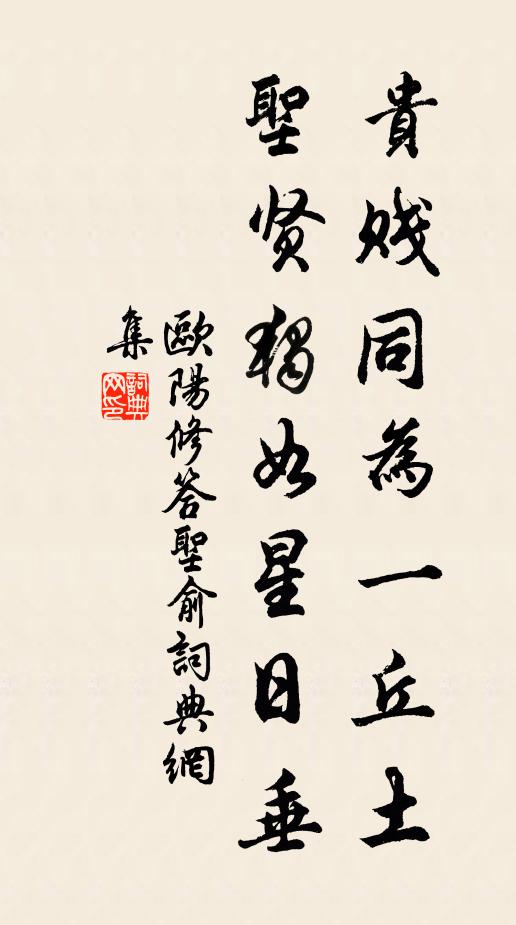 貴賤同為一丘土
聖贤獨如星日垂
歐陽修答聖俞詞典網
集
詞典
网印